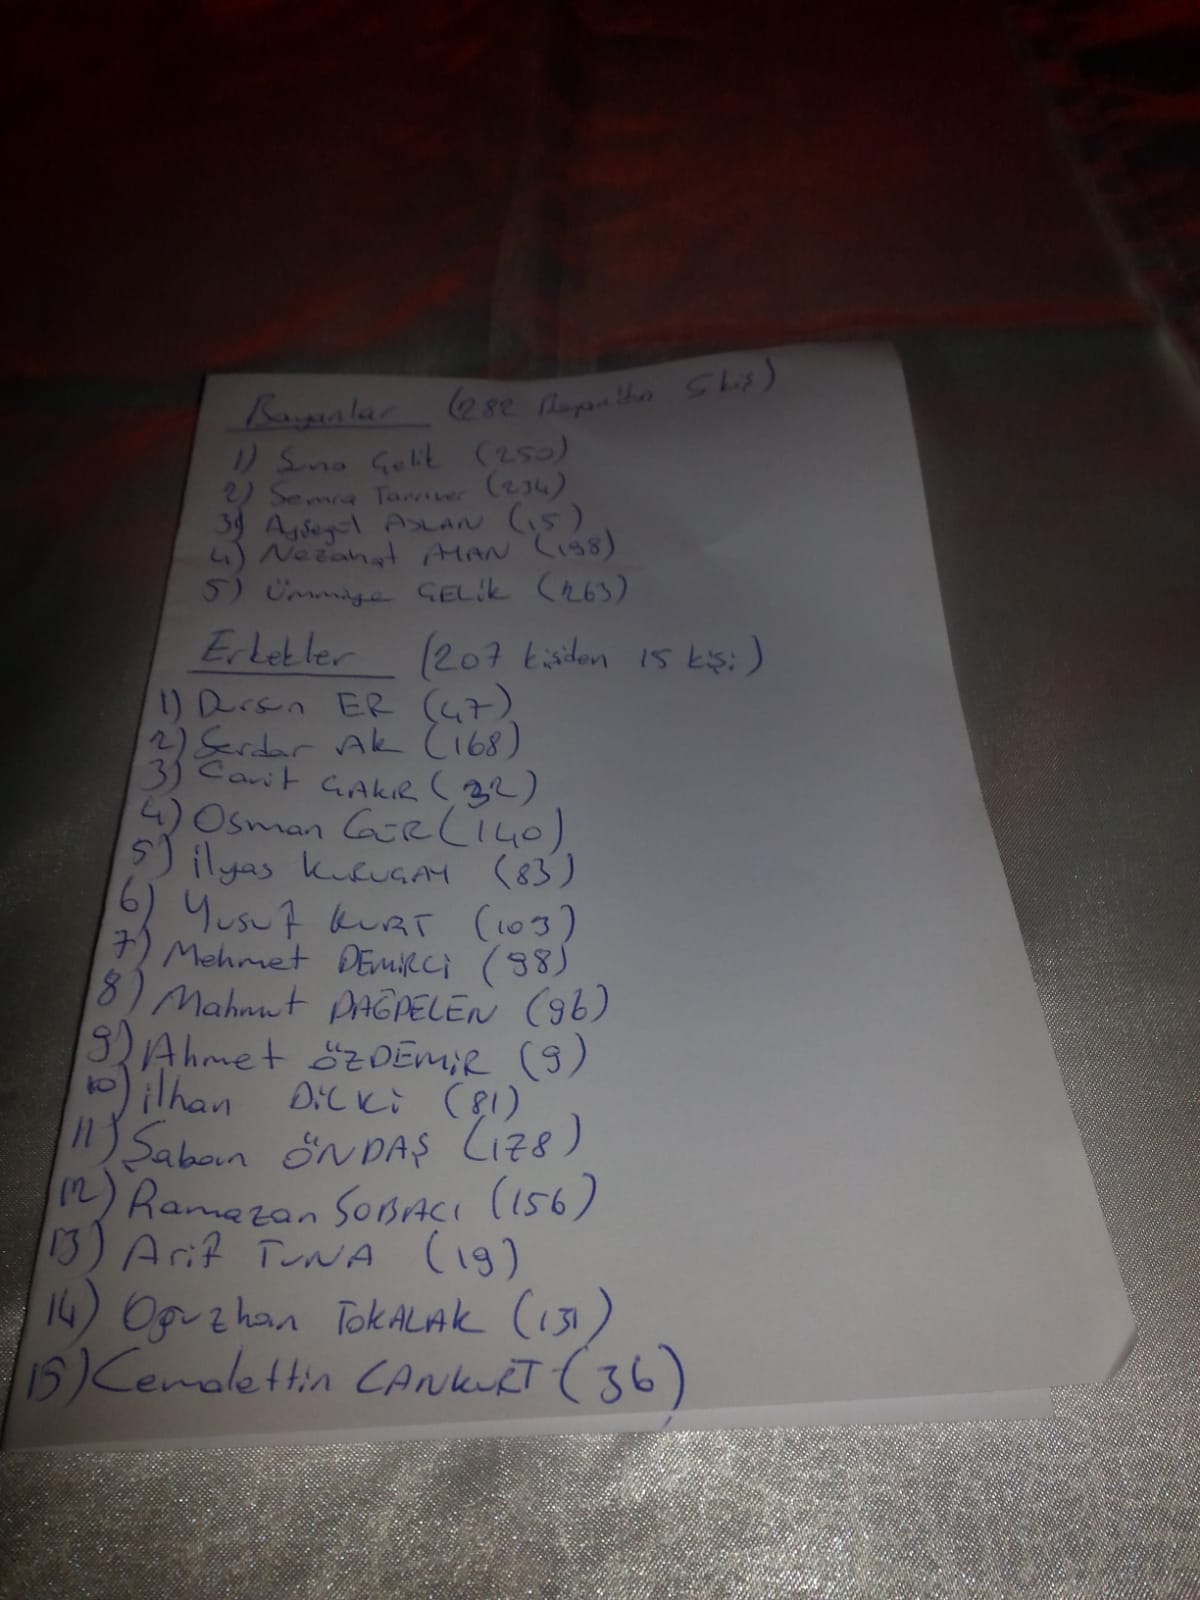 Bayanlar (282 Bayandan 5 kişi)
1) Suna Çelik (250)
2) Semra Tanrıver (234)
3) Ayşegül ASLAN (15)
4) Nezahat (198)
5) Ümmiye ÇELİK (263)
Erkekler (207 kişiden 15 kişi)
1) Dursun ER (47)
2) Serdar AK (168)
3) Cavit ÇAKIR (32)
4) Osman (140)
5) İlyas KURUÇAY (83)
6) Yusuf KURT (103)
7) Mehmet DEMİRCİ (98)
8) Mahmut DAĞDELEN (96)
9) Ahmet ÖZDEMİR (9)
10) İlhan DİLKİ (81)
11) Şaban ÖNDAŞ (178)
12) Ramazan SOBACI (156)
13) Arif TUNA (19)
14) Oğuzhan TOKALAK (131)
15) Cemalettin CANKURT (36)